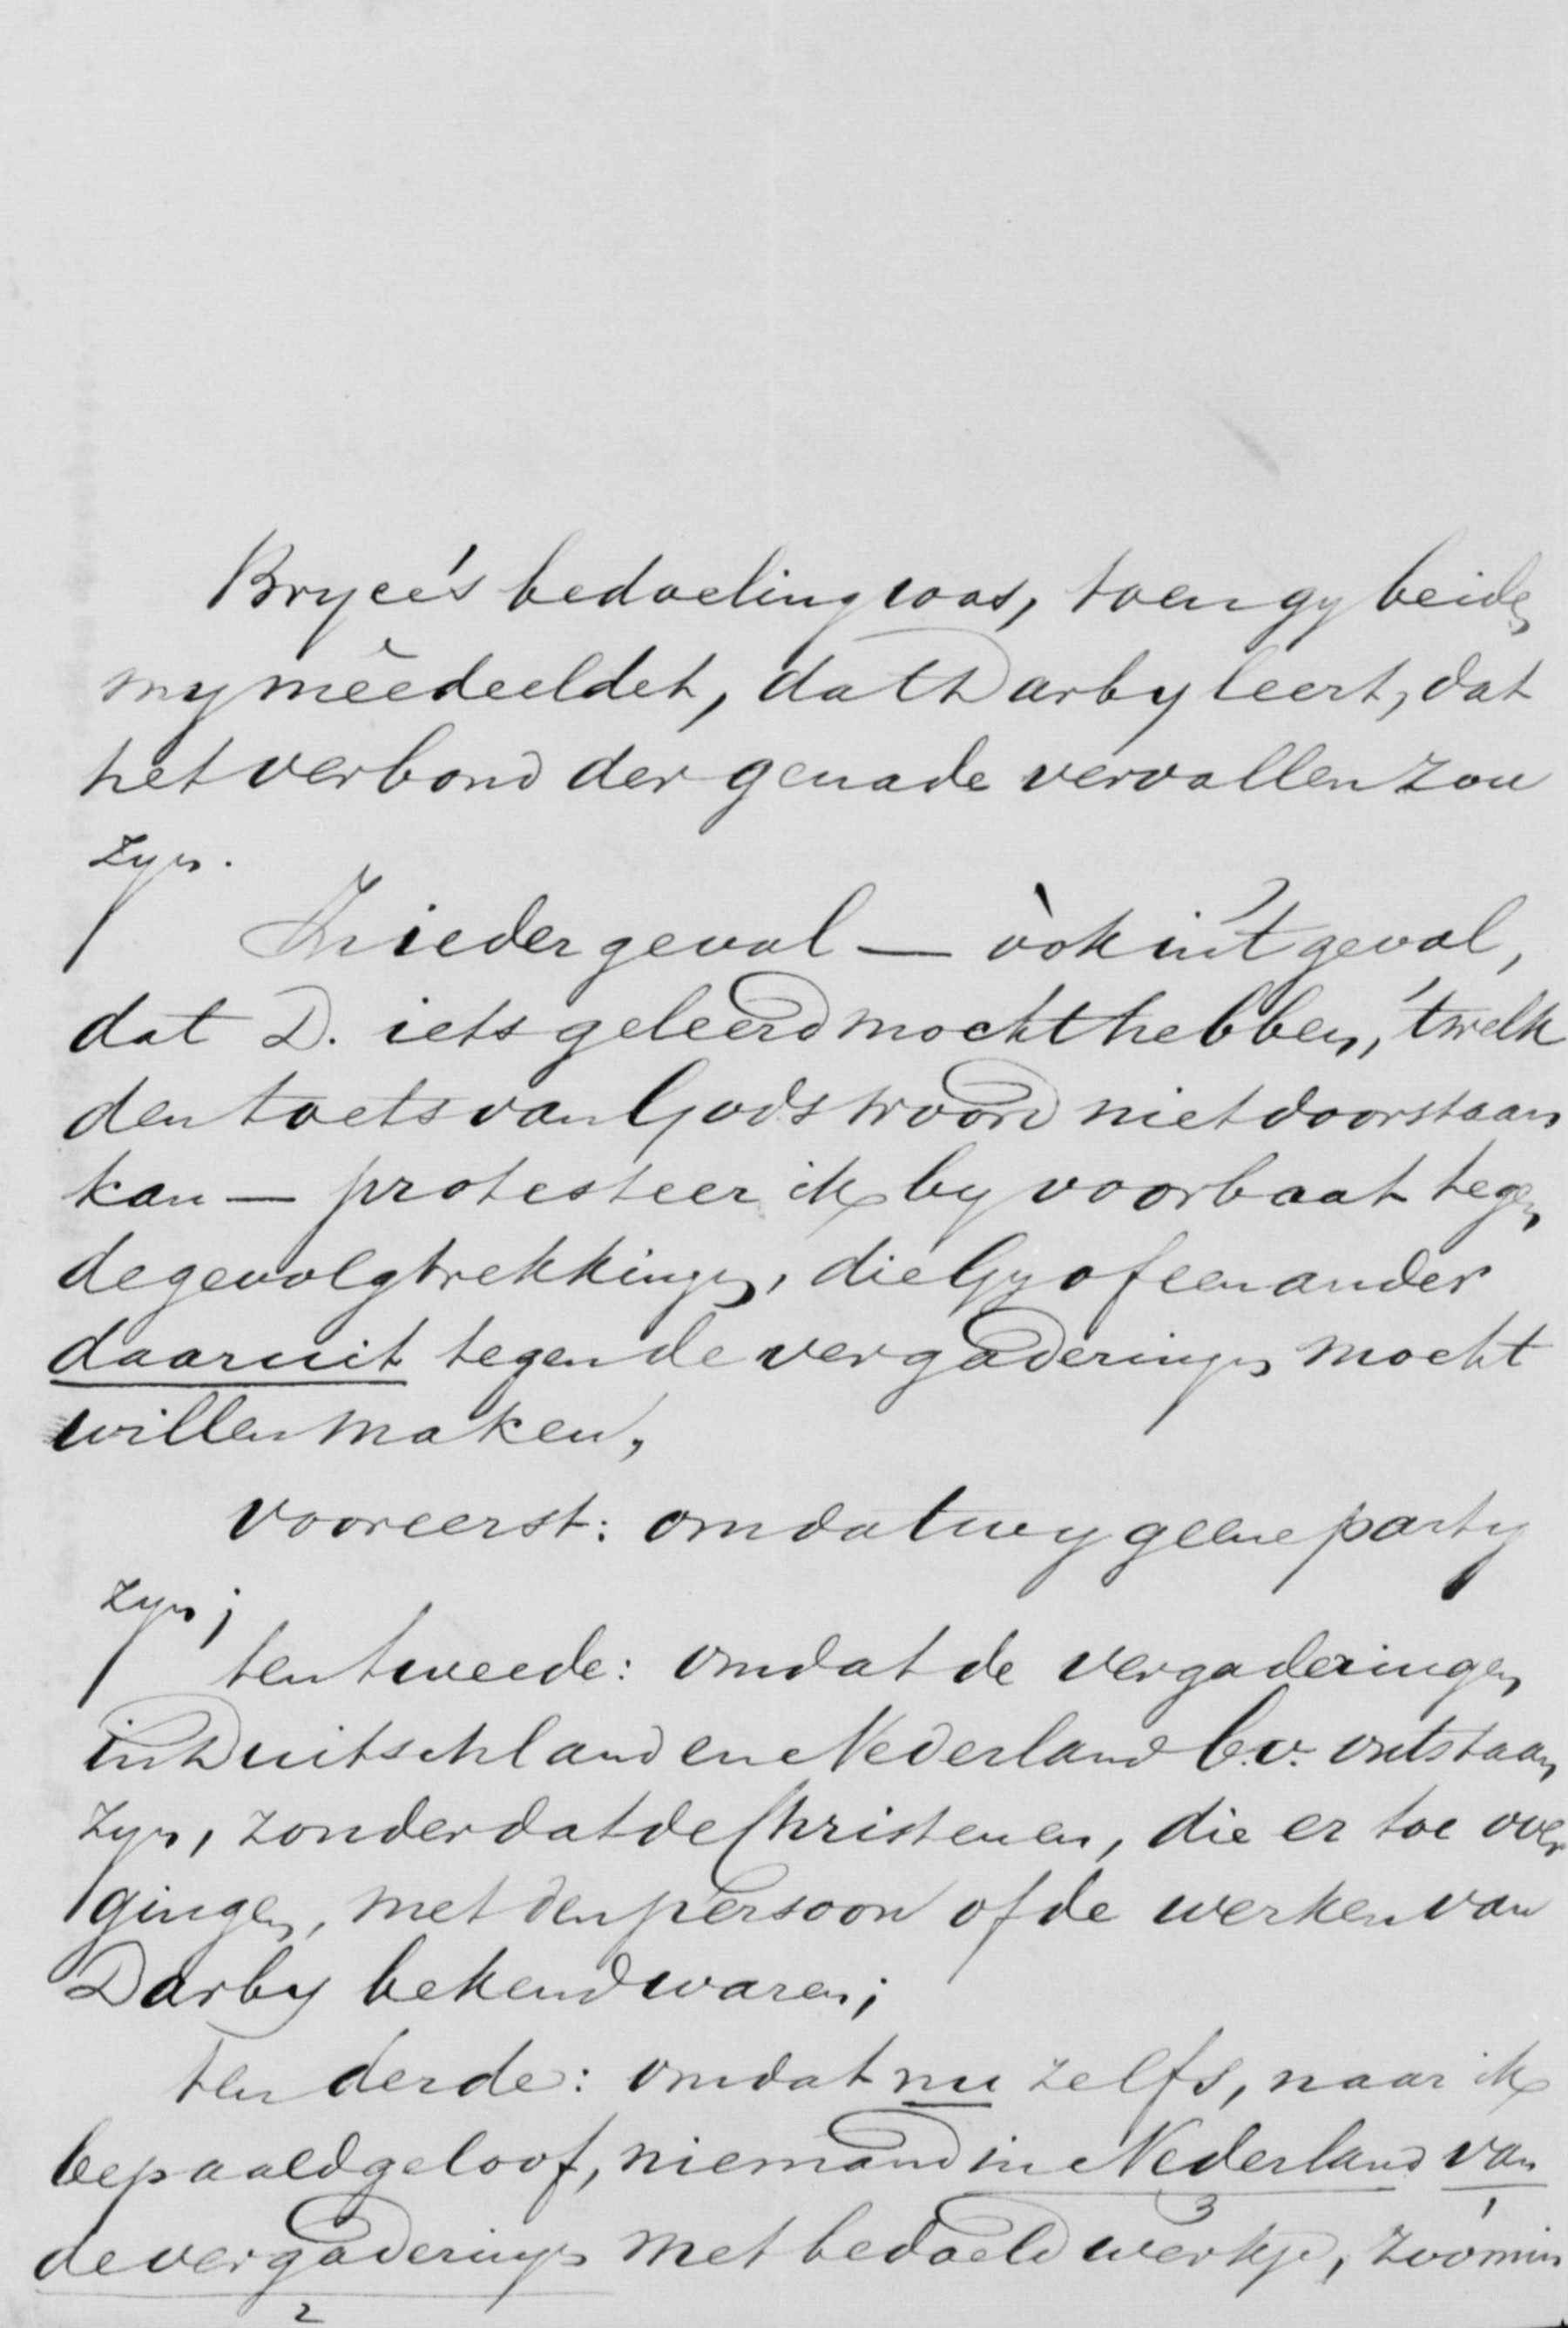 Bryce's bedoeling was, toen gy beide
my meêdeeldet, dat Darby leert, dat
het verbond der genade vervallen zou
zyn.
In ieder geval — òòk in 't geval,
dat D. iets geleerd mocht hebben, 't welk
den toets van Gods woord niet doorstaan
kan — protesteer ik by voorbaat tegen
de gevolgtrekkingen, die Gy of een ander
daaruit tegen de vergaderingen mocht
willen maken,
vooreerst: omdat wy geene party
zyn;
ten tweede: omdat de vergaderingen
in Duitschland en Nederland b.v. ontstaan
zyn, zonder dat de Christenen, die er toe over
gingen, met den persoon of de werken van
Darby bekend waren;
ten derde: omdat nu zelfs, naar ik
bepaald geloof, niemand in Nederland van
3 1
de vergaderingen met bedoeld werkje, zoomin
2